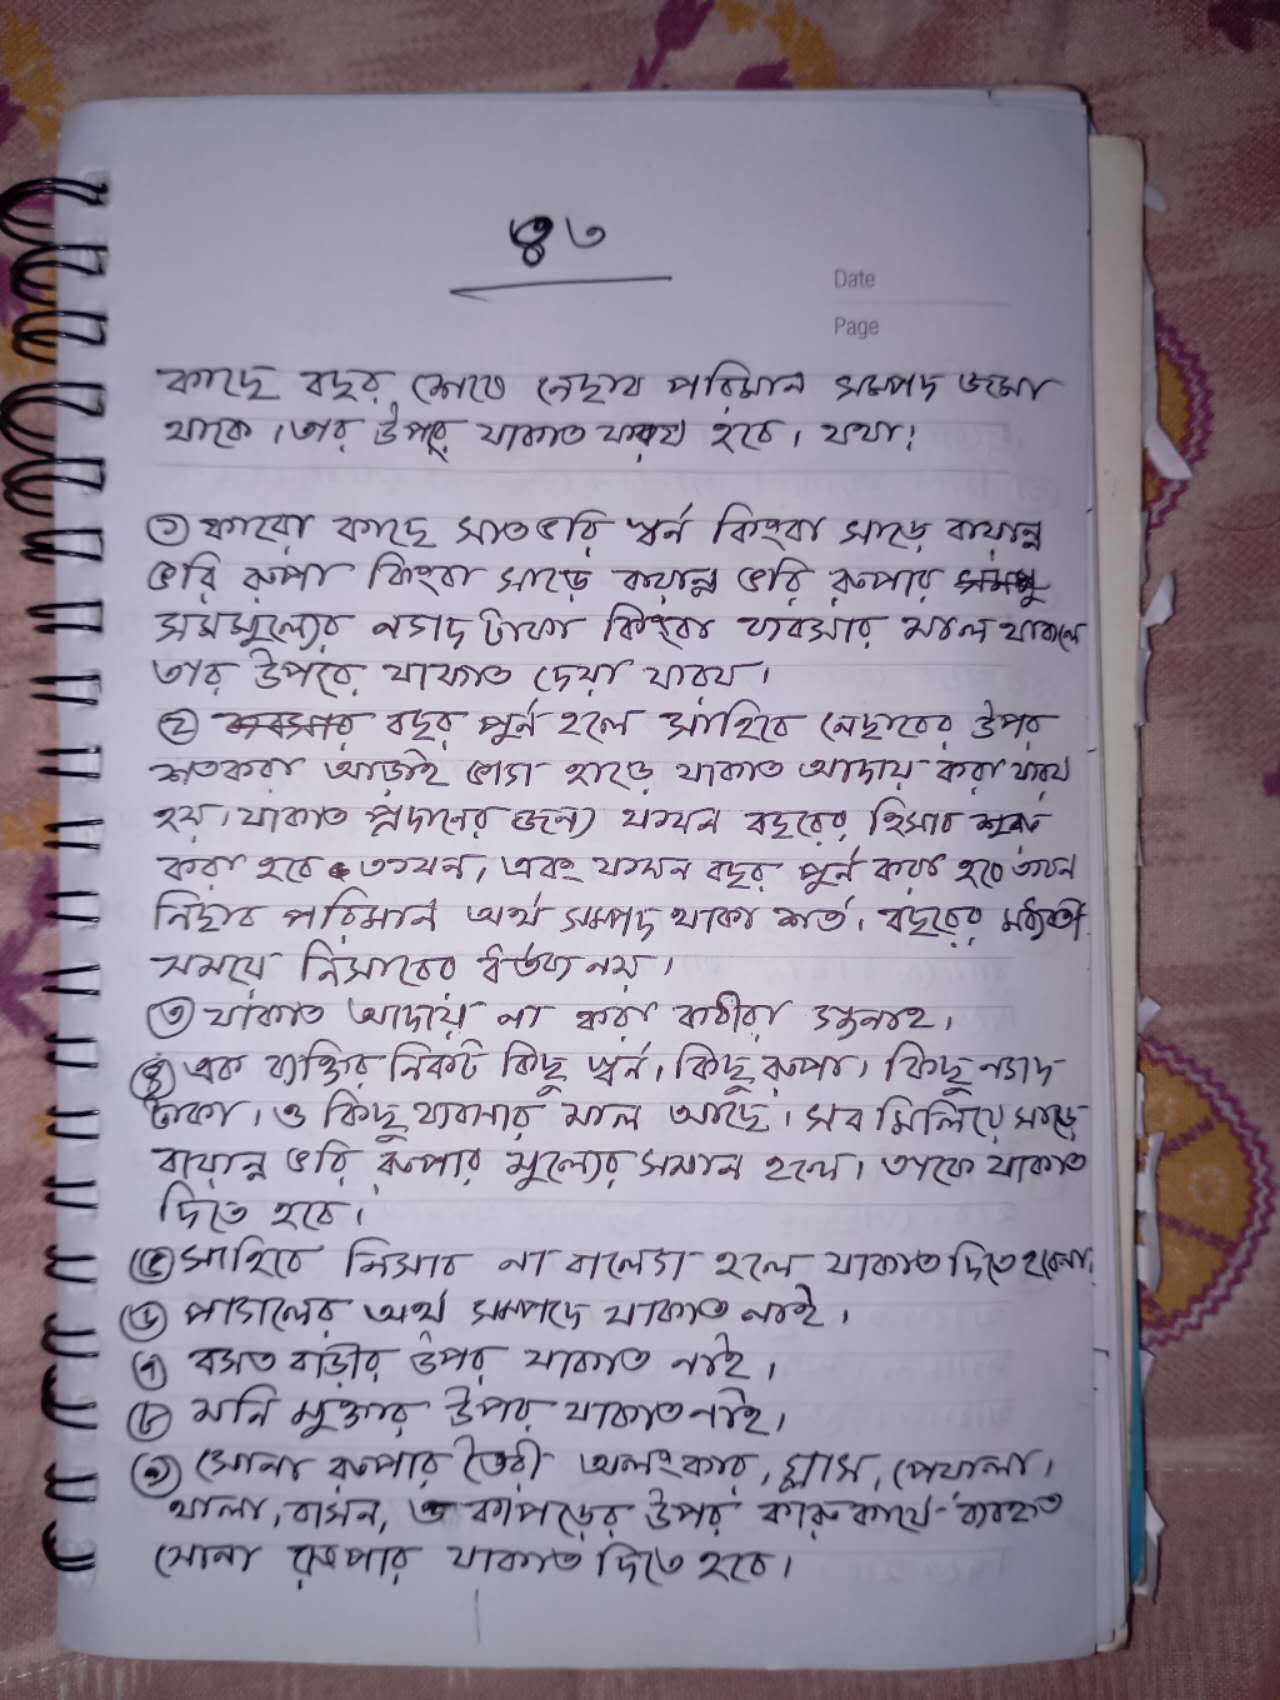 ৪৩
Date
Page
কাছে বছর শেষে নেছাব পরিমান সম্পদ জমা
থাকে। তার উপর যাকাত ফরয হবে। যথা:
① কারো কাছে সাত ভরি স্বর্ন কিংবা সাড়ে বায়ান্ন
ভরি রুপা কিংবা সাড়ে বায়ান্ন ভরি রুপার
সমমুল্যের নগদ টাকা কিংবা ব্যবসার মাল থাকলে
তার উপরে যাকাত দেয়া ফরয।
② বছর পুর্ন হলে সাহিবে নেছাবের উপর
শতকরা আড়াই ভাগ হাড়ে যাকাত আদায় করা ফরয
হয়। যাকাত প্রদানের জন্য যখন বছরের হিসাব শুরু
করা হবে তখন, এবং যখন বছর পুর্ন করা হবে তখন
নিছাব পরিমান অর্থ সম্পদ থাকা শর্ত। বছরের মধ্যবর্তী
সময়ে নিসাবের ধর্তব্য নয়।
③ যাকাত আদায় না করা কবীরা গুনাহ।
④ এক ব্যক্তির নিকট কিছু স্বর্ন, কিছু রুপা, কিছু নগদ
টাকা, ও কিছু ব্যবসার মাল আছে। সব মিলিয়ে সাড়ে
বায়ান্ন ভরি রুপার মুল্যের সমান হলে, তাকে যাকাত
দিতে হবে।
⑤ সাহিবে নিসাব না বালেগ হলে যাকাত দিতে হবেনা।
⑥ পাগলের অর্থ সম্পদে যাকাত নাই।
⑦ বসত বাড়ীর উপর যাকাত নাই।
⑧ মনি মুক্তার উপর যাকাত নাই।
⑨ সোনা রুপার তৈরী অলংকার, গ্লাস, পেয়ালা,
থালা, বাসন, ও কাপড়ের উপর কারুকার্যে ব্যবহৃত
সোনা রুপার যাকাত দিতে হবে।